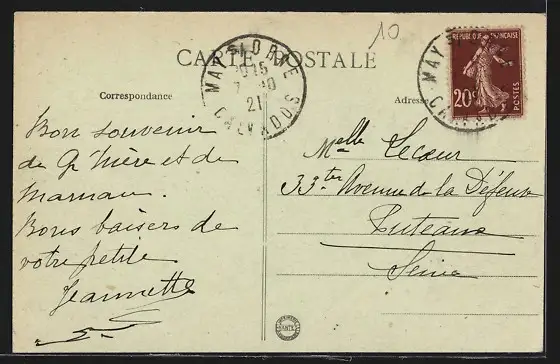 10
CARTE POSTALE
MAY S/ ORNE
10 15
7 10
21
CALVADOS
MAY S/
REPUBLIQUE FRANÇAISE
20c
POSTES
Correspondance
Adresse
Bon souvenir
de Gd Mère et de
Maman.
Bons baisers de
votre petite
Jeannette
Melle Lecœur
33ter Avenue de la Défense
Puteaux
Seine
NANTES